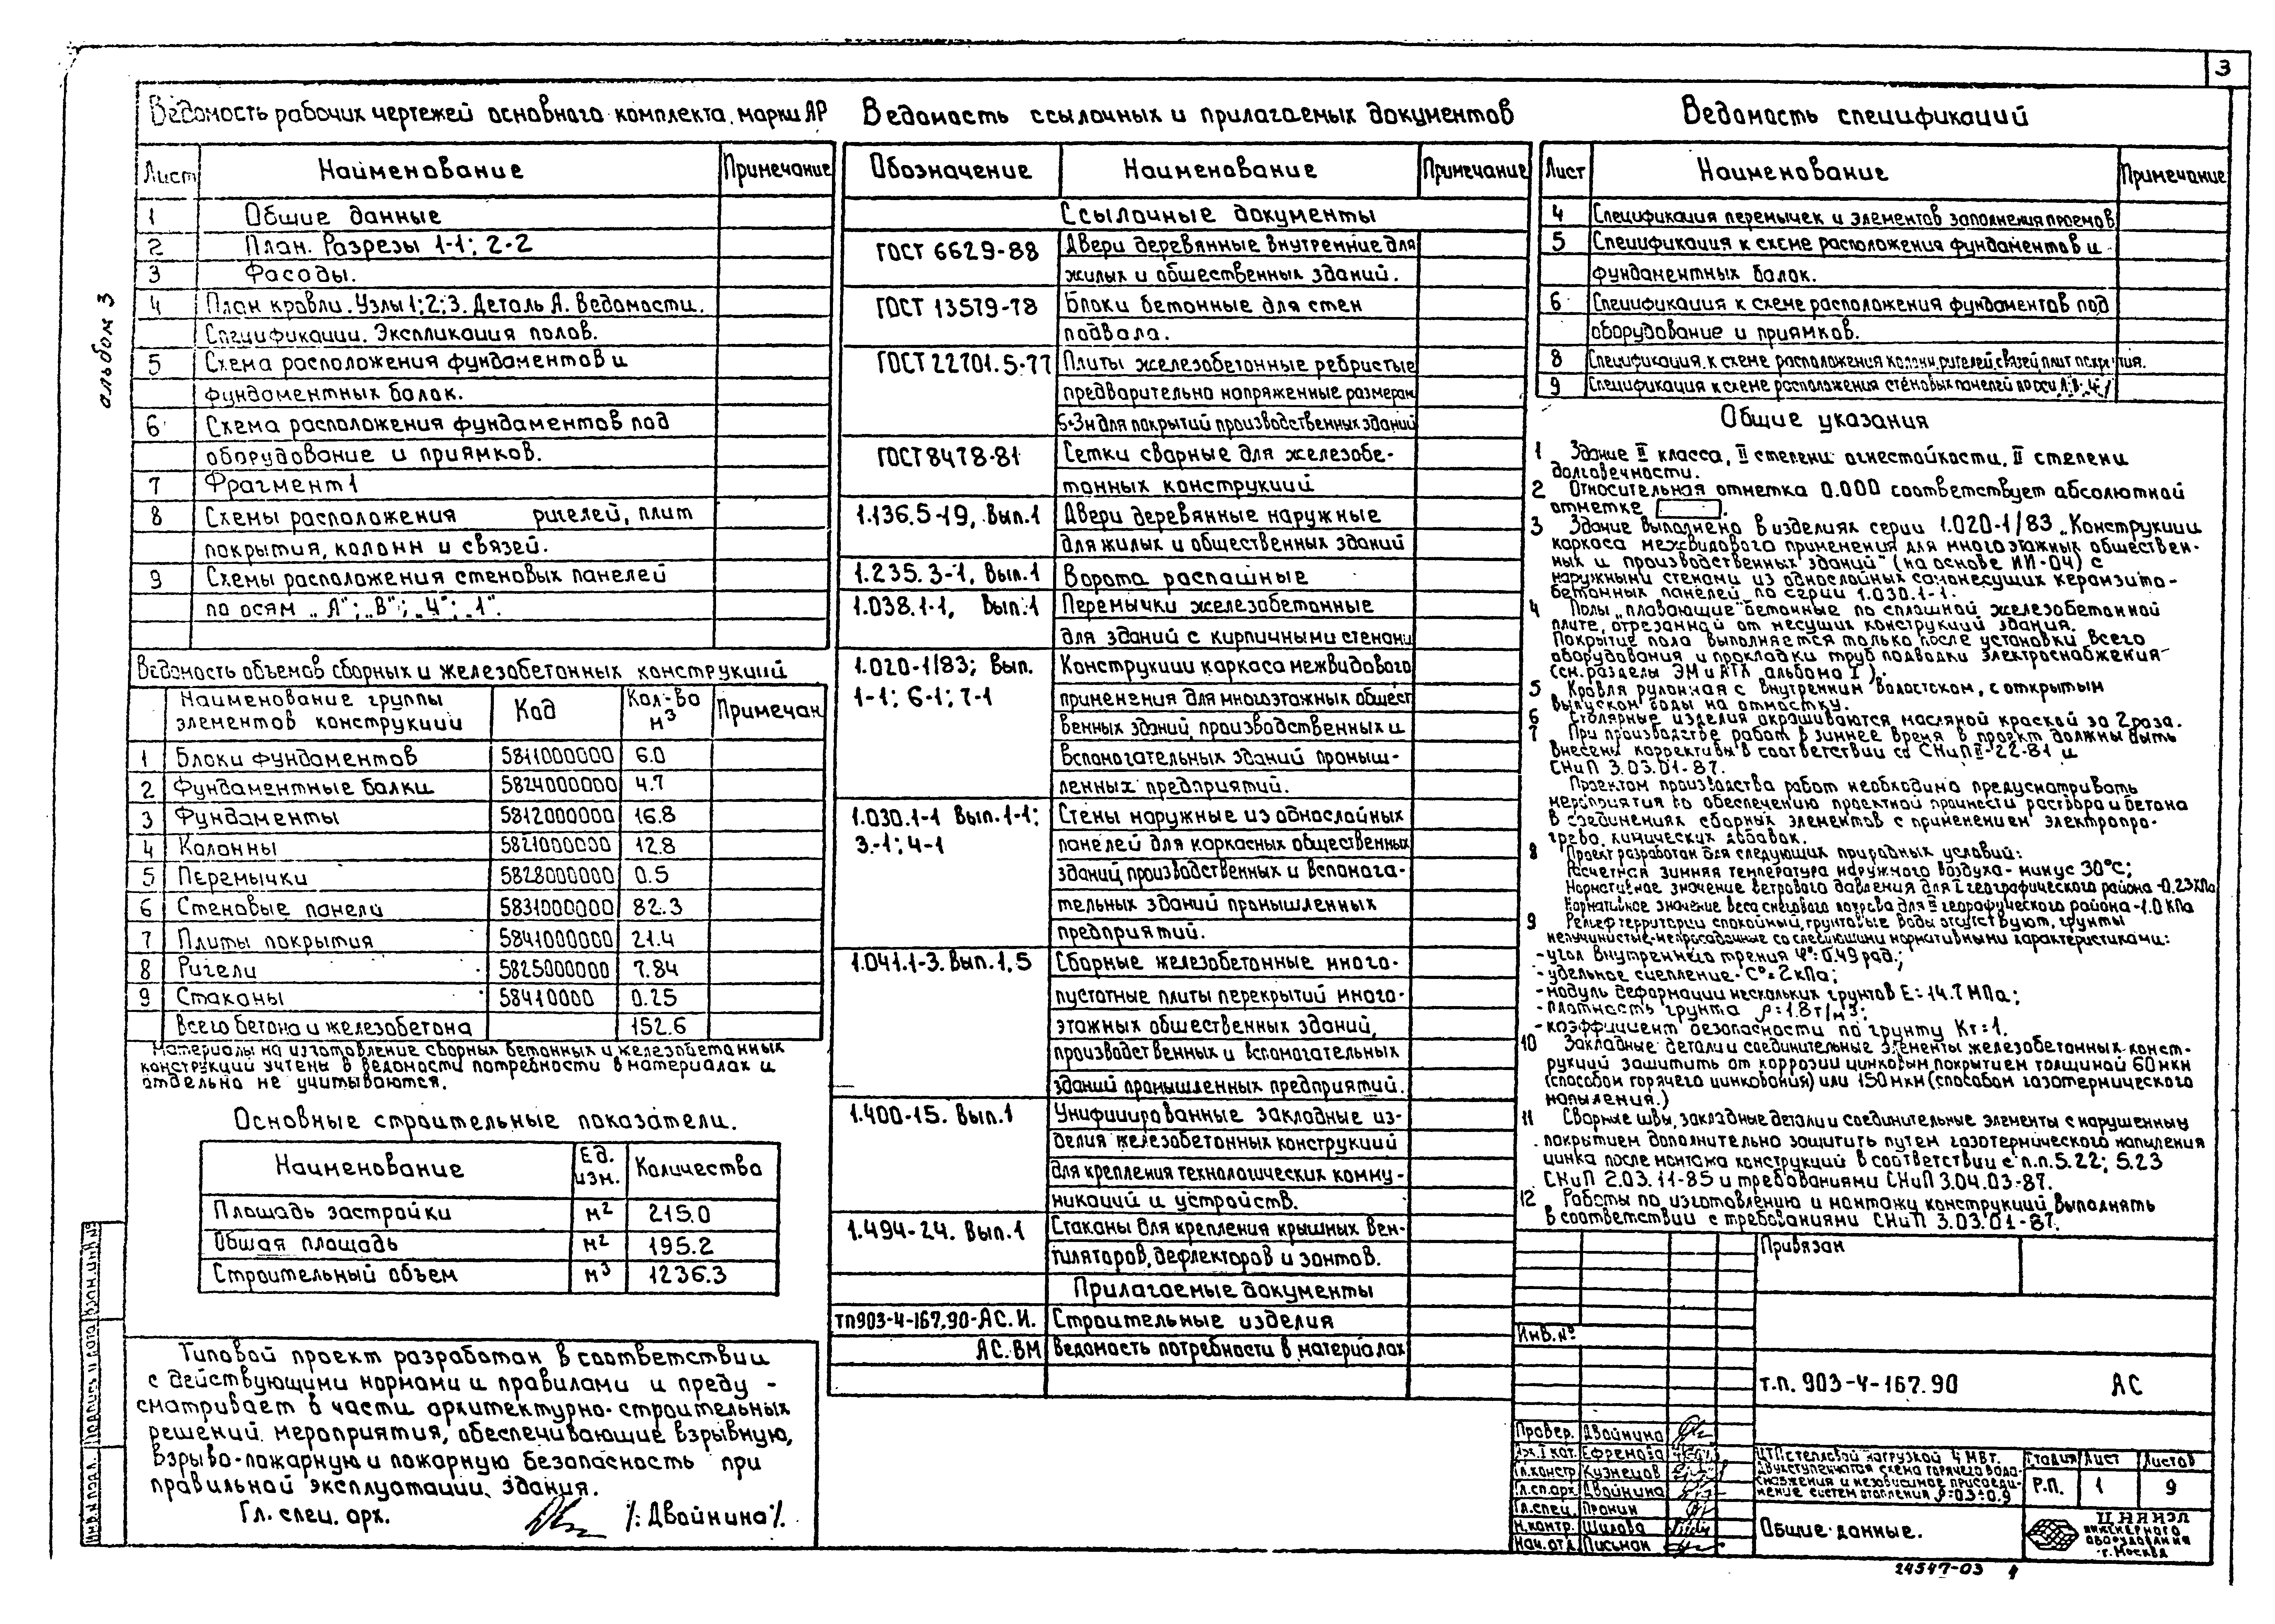 3
альбом 3
Ведомость рабочих чертежей основного комплекта марки АР
Лист Наименование Примечание
1 Общие данные
2 План. Разрезы 1-1; 2-2
3 Фасады.
4 План кровли. Узлы 1; 2; 3. Деталь А. Ведомости.
Спецификации. Экспликация полов.
5 Схема расположения фундаментов и
фундаментных балок.
6 Схема расположения фундаментов под
оборудование и приямков.
7 Фрагмент 1
8 Схемы расположения ригелей, плит
покрытия, колонн и связей.
9 Схемы расположения стеновых панелей
по осям „А"; „В"; „4"; „1".
Ведомость объемов сборных и железобетонных конструкций
Наименование группы элементов конструкции Код Кол-во м3 Примечан
1 Блоки фундаментов 5811000000 6.0
2 Фундаментные балки 5824000000 4.7
3 Фундаменты 5812000000 16.8
4 Колонны 5821000000 12.8
5 Перемычки 5828000000 0.5
6 Стеновые панели 5831000000 82.3
7 Плиты покрытия 5841000000 21.4
8 Ригели 5825000000 7.84
9 Стаканы 58410000 0.25
Всего бетона и железобетона 152.6
Материалы на изготовление сборных бетонных и железобетонных
конструкций учтены в ведомости потребности в материалах и
отдельно не учитываются.
Основные строительные показатели.
Наименование Ед. изм. Количество
Площадь застройки м2 215.0
Общая площадь м2 195.2
Строительный объем м3 1236.3
Типовой проект разработан в соответствии
с действующими нормами и правилами и преду-
сматривает в части архитектурно-строительных
решений мероприятия, обеспечивающие взрывную,
взрыво-пожарную и пожарную безопасность при
правильной эксплуатации здания.
Гл. спец. арх. /: Двойнина /.
Ведомость ссылочных и прилагаемых документов
Обозначение Наименование Примечание
Ссылочные документы
ГОСТ 6629-88 Двери деревянные внутренние для
жилых и общественных зданий.
ГОСТ 13579-78 Блоки бетонные для стен
подвала.
ГОСТ 22701.5-77 Плиты железобетонные ребристые
предварительно напряженные размером
6×3м для покрытий производственных зданий
ГОСТ 8478-81 Сетки сварные для железобе-
тонных конструкций
1.136.5-19, Вып.1 Двери деревянные наружные
для жилых и общественных зданий
1.235.3-1, Вып.1 Ворота распашные
1.038.1-1, Вып.1 Перемычки железобетонные
для зданий с кирпичными стенами
1.020-1/83; Вып. Конструкции каркаса межвидового
1-1; 6-1; 7-1 применения для многоэтажных общест
венных зданий, производственных и
вспомогательных зданий промыш-
ленных предприятий.
1.030.1-1 Вып.1-1; Стены наружные из однослойных
3.-1; 4-1 панелей для каркасных общественных
зданий, производственных и вспомога-
тельных зданий промышленных
предприятий.
1.041.1-3. Вып.1,5 Сборные железобетонные много-
пустотные плиты перекрытий много-
этажных общественных зданий,
производственных и вспомогательных
зданий промышленных предприятий.
1.400-15. Вып.1 Унифицированные закладные из-
делия железобетонных конструкций
для крепления технологических комму-
никаций и устройств.
1.494-24. Вып.1 Стаканы для крепления крышных вен-
тиляторов, дефлекторов и зонтов.
Прилагаемые документы
тп903-4-167.90-АС.И. Строительные изделия
АС.ВМ Ведомость потребности в материалах
Ведомость спецификаций
Лист Наименование Примечание
4 Спецификация перемычек и элементов заполнения проемов
5 Спецификация к схеме расположения фундаментов и
фундаментных балок.
6 Спецификация к схеме расположения фундаментов под
оборудование и приямков.
8 Спецификация к схеме расположения колонн, ригелей, связей, плит покрытия.
9 Спецификация к схеме расположения стеновых панелей по оси А; В; 4; 1
Общие указания
1 Здание II класса, II степени огнестойкости, II степени
долговечности.
2 Относительная отметка 0.000 соответствует абсолютной
отметке
3 Здание выполнено в изделиях серии 1.020-1/83 „Конструкции
каркаса межвидового применения для многоэтажных обществен-
ных и производственных зданий" (на основе ИИ-04) с
наружными стенами из однослойных самонесущих керамзито-
бетонных панелей по серии 1.030.1-1.
4 Полы „плавающие" бетонные по сплошной железобетонной
плите, отрезанной от несущих конструкций здания.
Покрытие пола выполняется только после установки всего
оборудования и прокладки труб подводки электроснабжения
(см. разделы ЭМ и АТХ альбома I).
5 Кровля рулонная с внутренним водостоком, с открытым
выпуском воды на отмостку.
6 Столярные изделия окрашиваются масляной краской за 2 раза.
7 При производстве работ в зимнее время в проект должны быть
внесены коррективы в соответствии со СНиП II-22-81 и
СНиП 3.03.01-87.
Проектом производства работ необходимо предусматривать
мероприятия по обеспечению проектной прочности раствора и бетона
в соединениях сборных элементов с применением электропро-
грева, химических добавок.
8 Проект разработан для следующих природных условий:
Расчетная зимняя температура наружного воздуха - минус 30°С;
Нормативное значение ветрового давления для I географического района -0.23кПа
Нормативное значение веса снегового покрова для III географического района -1.0 кПа
9 Рельеф территории спокойный, грунтовые воды отсутствуют, грунты
непучинистые, непросадочные со следующими нормативными характеристиками:
- угол внутреннего трения φн=0.49 рад.;
- удельное сцепление Сн=2кПа;
- модуль деформации нескальных грунтов Е=14.7 МПа;
- плотность грунта ρ=1.8т/м3;
- коэффициент безопасности по грунту Кг=1.
10 Закладные детали и соединительные элементы железобетонных конст-
рукций защитить от коррозии цинковым покрытием толщиной 60мкм
(способом горячего цинкования) или 150мкм (способом газотермического
напыления.)
11 Сварные швы, закладные детали и соединительные элементы с нарушенным
покрытием дополнительно защитить путем газотермического напыления
цинка после монтажа конструкций в соответствии с п.п.5.22; 5.23
СНиП 2.03.11-85 и требованиями СНиП 3.04.03-87.
12 Работы по изготовлению и монтажу конструкций выполнять
в соответствии с требованиями СНиП 3.03.01-87.
Привязан
Инв.№
т.п. 903-4-167.90 АС
Провер. Двойнина
Арх. I кат. Ефремова
Гл.констр Кузнецов
Гл.сп.арх. Двойнина
Гл.спец. Пронин
Н.контр. Шилова
Нач.отд. Письман
ЦТП с тепловой нагрузкой 4 МВт.
Двухступенчатая схема горячего водо-
снабжения и независимое присоеди-
нение систем отопления ρ=0.3÷0.9
Стадия Лист Листов
Р.П. 1 9
Общие данные.
ЦНИИЭП
инженерного
оборудования
г. Москва
24547-03 4
Инв.№ подл. Подпись и дата Взам.инв.№